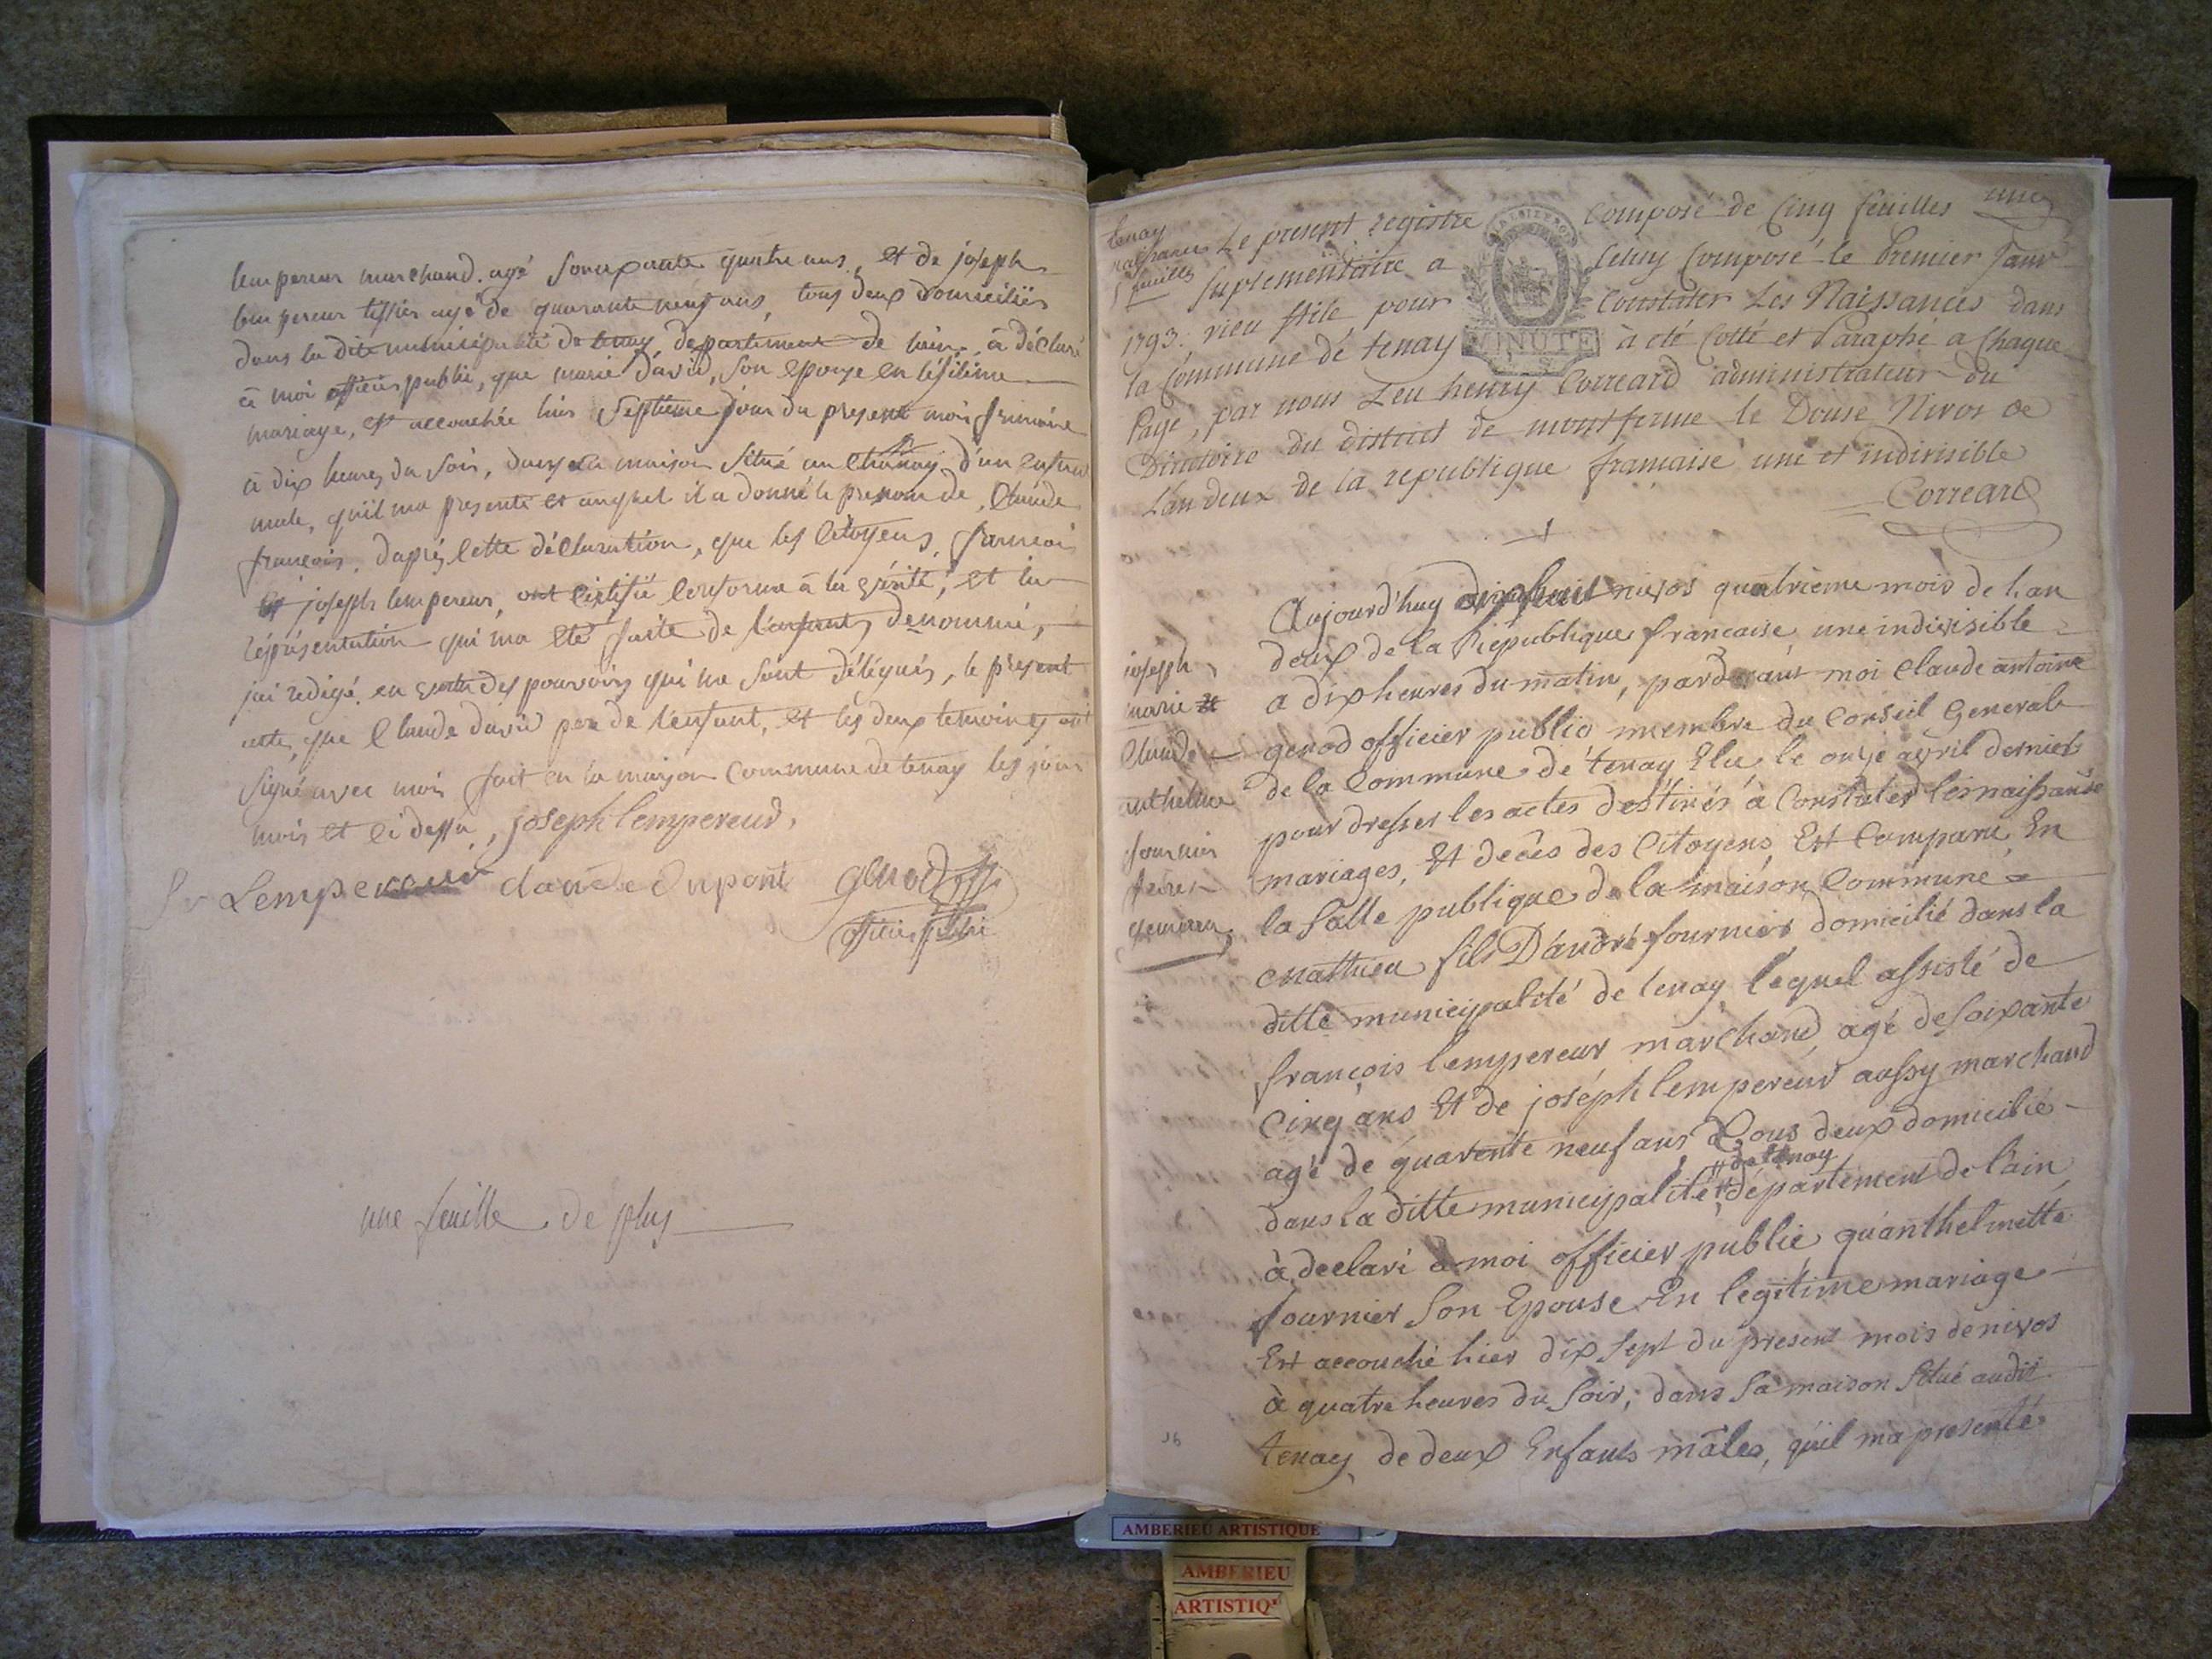 lempereur marchand. agé soixante quatre ans, et de joseph
lempereur tissier agé de quarante neuf ans, tous deux domiciliés
dans la dite municipalité de tenay, departement de lain, à déclaré
à moi officier public, que marie david, son epouse en légitime
mariage, est accouchée hier septieme jour du present mois frimaire
à dix heures du soir, dans sa maison situé au d'un enfant
male, qu'il ma presenté et auquel il a donné le prenom de, Claude
françois. daprés cette déclaration, que les Citoyens, francois
et joseph lempereur, ont certifié conforme à la vérité, et la
réprésentation qui ma été faite de l'enfant denommé,
jai redigé. en vertu des pouvoirs qui me sont délégués, le present
acte, que Claude david pere de l'enfant, et les deux temoins ont
signé avec moi, fait en la maison Commune de tenay les jour
mois et ci dessu, joseph lempereur,
Lempereur dupont genod
officier public
une feuille de plus
tenay
naissances
5 feuilles
une
Le present registre composé de Cinq feuilles
suplementaire a Celuy Composé le Premier Janv
1793. vieu stile pour Constater Les Naissances dans
la Commune de tenay à eté Cotté et Paraphé a Chaque
MINUTE
Page, par nous Leu henry Correard administrateur du
Directoire du district de montferme le Douse Nivos de
L'an deux de la republique française une et indivisible
Correard
joseph
marie et
Claude
anthelme
fournier
freres
gemeaux
Aujourd'huy dixhuit nivos quatrieme mois de l'an
deux de la Republique francaise une indivisible
a dix heures du matin, pardevant moi Claude antoine
genod officier public membre du Conseil General
de la Commune de tenay Elu le onze avril dernier
pour dresser les actes destinés à Constater les naissanse
mariages, Et decès des Citoyens, Est Comparu En
la Salle publique de la maison Commune
mathieu fils D'andré fournier domicilié dans la
ditte municipalité de tenay lequel assisté de
françois lempereur marchand, agé de soixante
Cinq ans Et de joséph lempereur aussy marchand
agé de quarente neuf ans, Tous deux domicilié
dans la ditte municipalité # département de l'ain,
# de tenay
à declaré à moi officier public, qu'anthelmette
fournier Son Epouse En legitime mariage
Est accouché hier dix sept du present mois de nivos
à quatre heures du soir, dans sa maison situé audit
tenay, de deux Enfants mâles, qu'il ma presenté
16
AMBERIEU ARTISTIQUE
AMBERIEU
ARTISTIQ